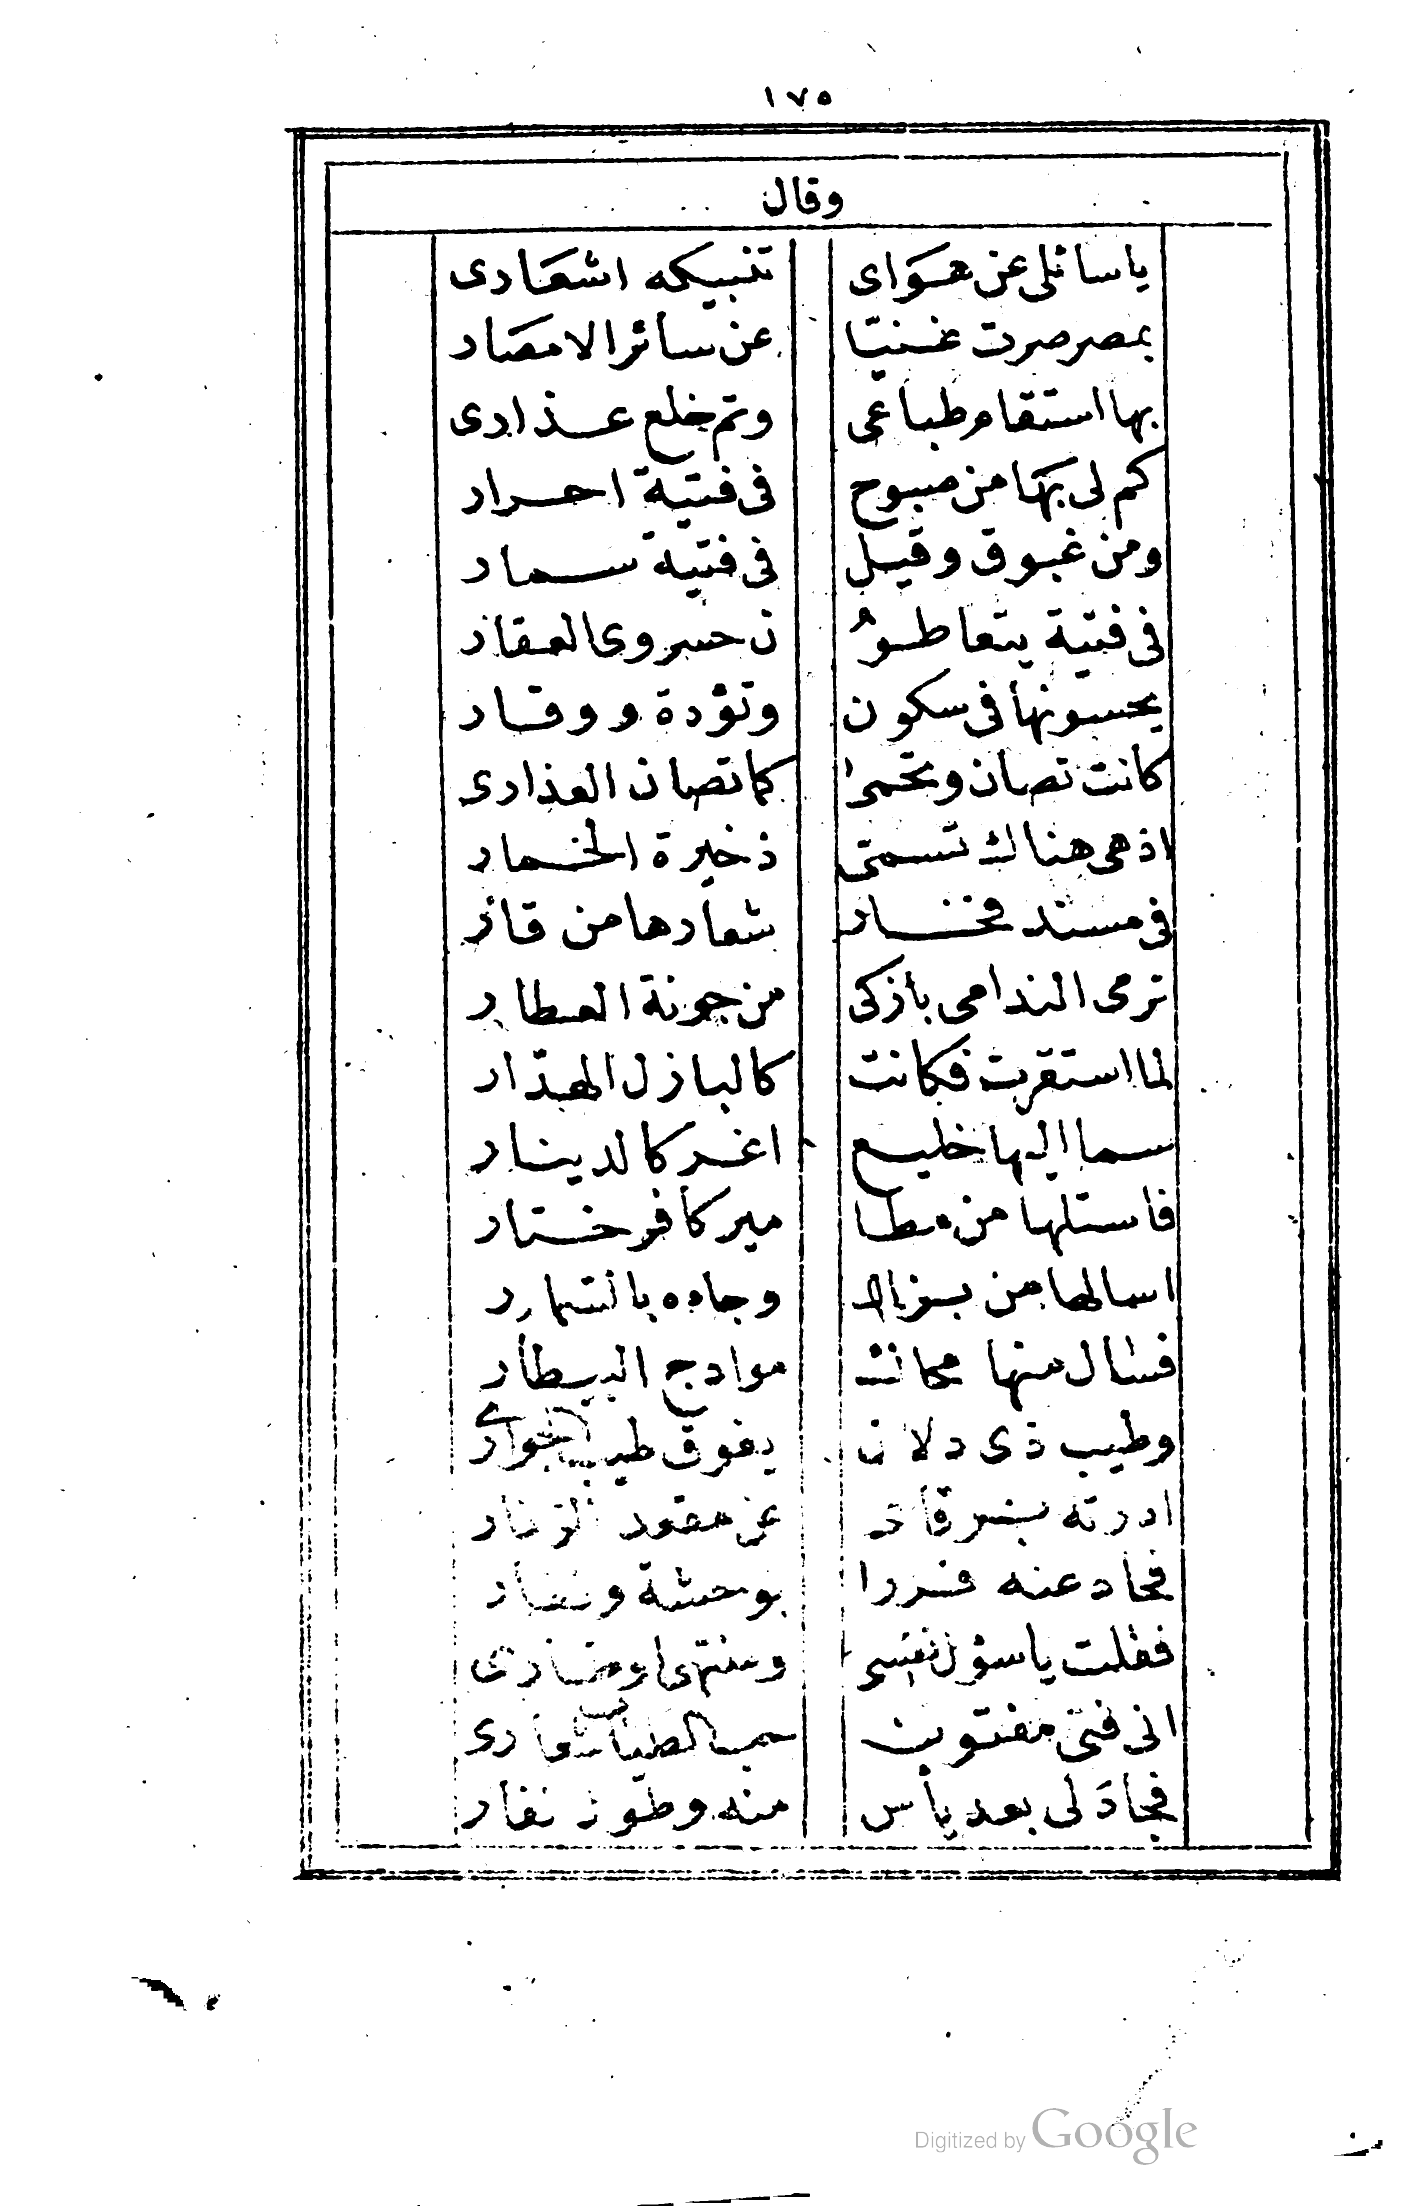 ١٧٥
وقال
ياسائلى عن هواى تنبيكه اشعارى
بمصر صرت غنيّا عن سائر الامصار
بها استقام طباعى وتم خلع عذارى
كم لى بها من صبوح فى فتية احرار
ومن غبوق وقيل فى فتية سمار
فى فتية يتعاطوُ ن خسروى العقار
يحسونها فى سكون وتؤدة ووقار
كانت تصان وتحمى كما تصان العذارى
اذهى هناك تسمى ذخيرة الخمار
فى مسند فخار شعارها من قار
ترمى الندامى بأزكى من جونة العطار
لما استقربت فكانت كالبازل الهدّار
سما اليها خليع اغر كالدينار
فاستلها من مطا مير كافر ختار
اسالها من بزال وجاءه بالشمارر
فسال منها محانث موادج البيطار
وطيب ذى دلان يفوق طيب الجوارى
ادرته عن معقد الزنار
فحاد عنه بوحشة ونفار
فقلت ياسؤل نفسى ومنتهى
انى فتى مفتون حب شعارى
فجادَ لى بعد يأس منه وطول نفار
Digitized by Google